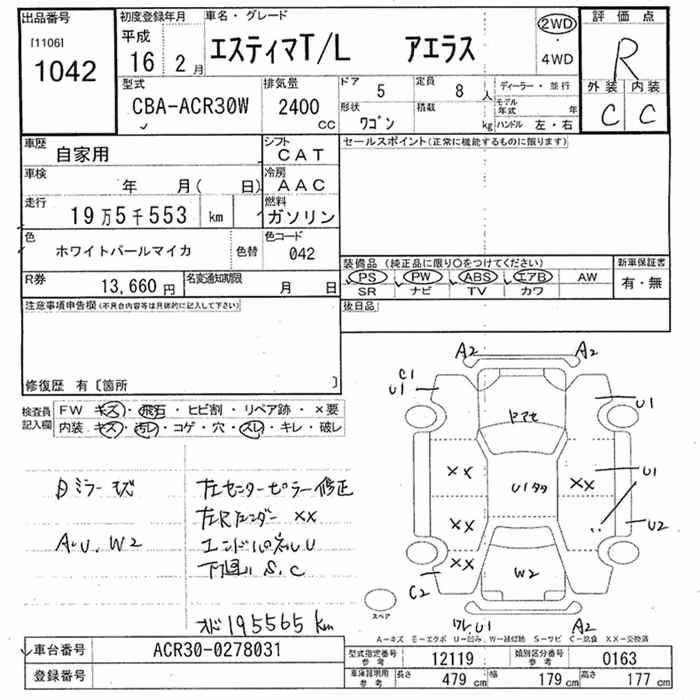 出品番号
[1106]
1042
初度登録年月
平成
16年 2月
車名・グレード
エスティマT/L アエラス
2WD
・
4WD
評価点
R
外装 内装
C C
型式
CBA-ACR30W
排気量
2400
CC
ドア 5
定員 8人
形状 ワゴン
積載 kg
ディーラー・並行
モデル年式 年
ハンドル 左・右
車歴
自家用
シフト
CAT
車検
年 月( 日)
冷房
AAC
走行
19万5千553 km
燃料
ガソリン
色
ホワイトパールマイカ
色替
色コード
042
R券
13,660円
名変通知期限
月 日
セールスポイント(正常に機能するものに限ります)
装備品 (純正品に限り○をつけてください)
PS PW ABS エアB AW
SR ナビ TV カワ
新車保証書
有・無
後日品
注意事項申告欄(不具合内容等は具体的に記入して下さい)
修復歴 有〔箇所 〕
検査員記入欄
FW キズ・飛石・ヒビ割・リペア跡・×要
内装 キズ・汚レ・コゲ・穴・スレ・キレ・破レ
左センターピラー修正
左Rフェンダー XX
エンドパネルU
下回り S、C
A・U、W2
195565 km
A2 A2
C1
U1
U1
ドアセ
XX
U1タタ
XX
U1
XX
U2
XX
W2
C2
ワレ U1
A2
スペア
A−キズ E−エクボ U−凹み、W−補修跡 S−サビ C−腐食 XX−交換済
車台番号
ACR30-0278031
登録番号
型式指定番号
参考
12119
類別区分番号
参考
0163
車庫証明用
参考
長さ 479 cm
幅 179 cm
高さ 177 cm